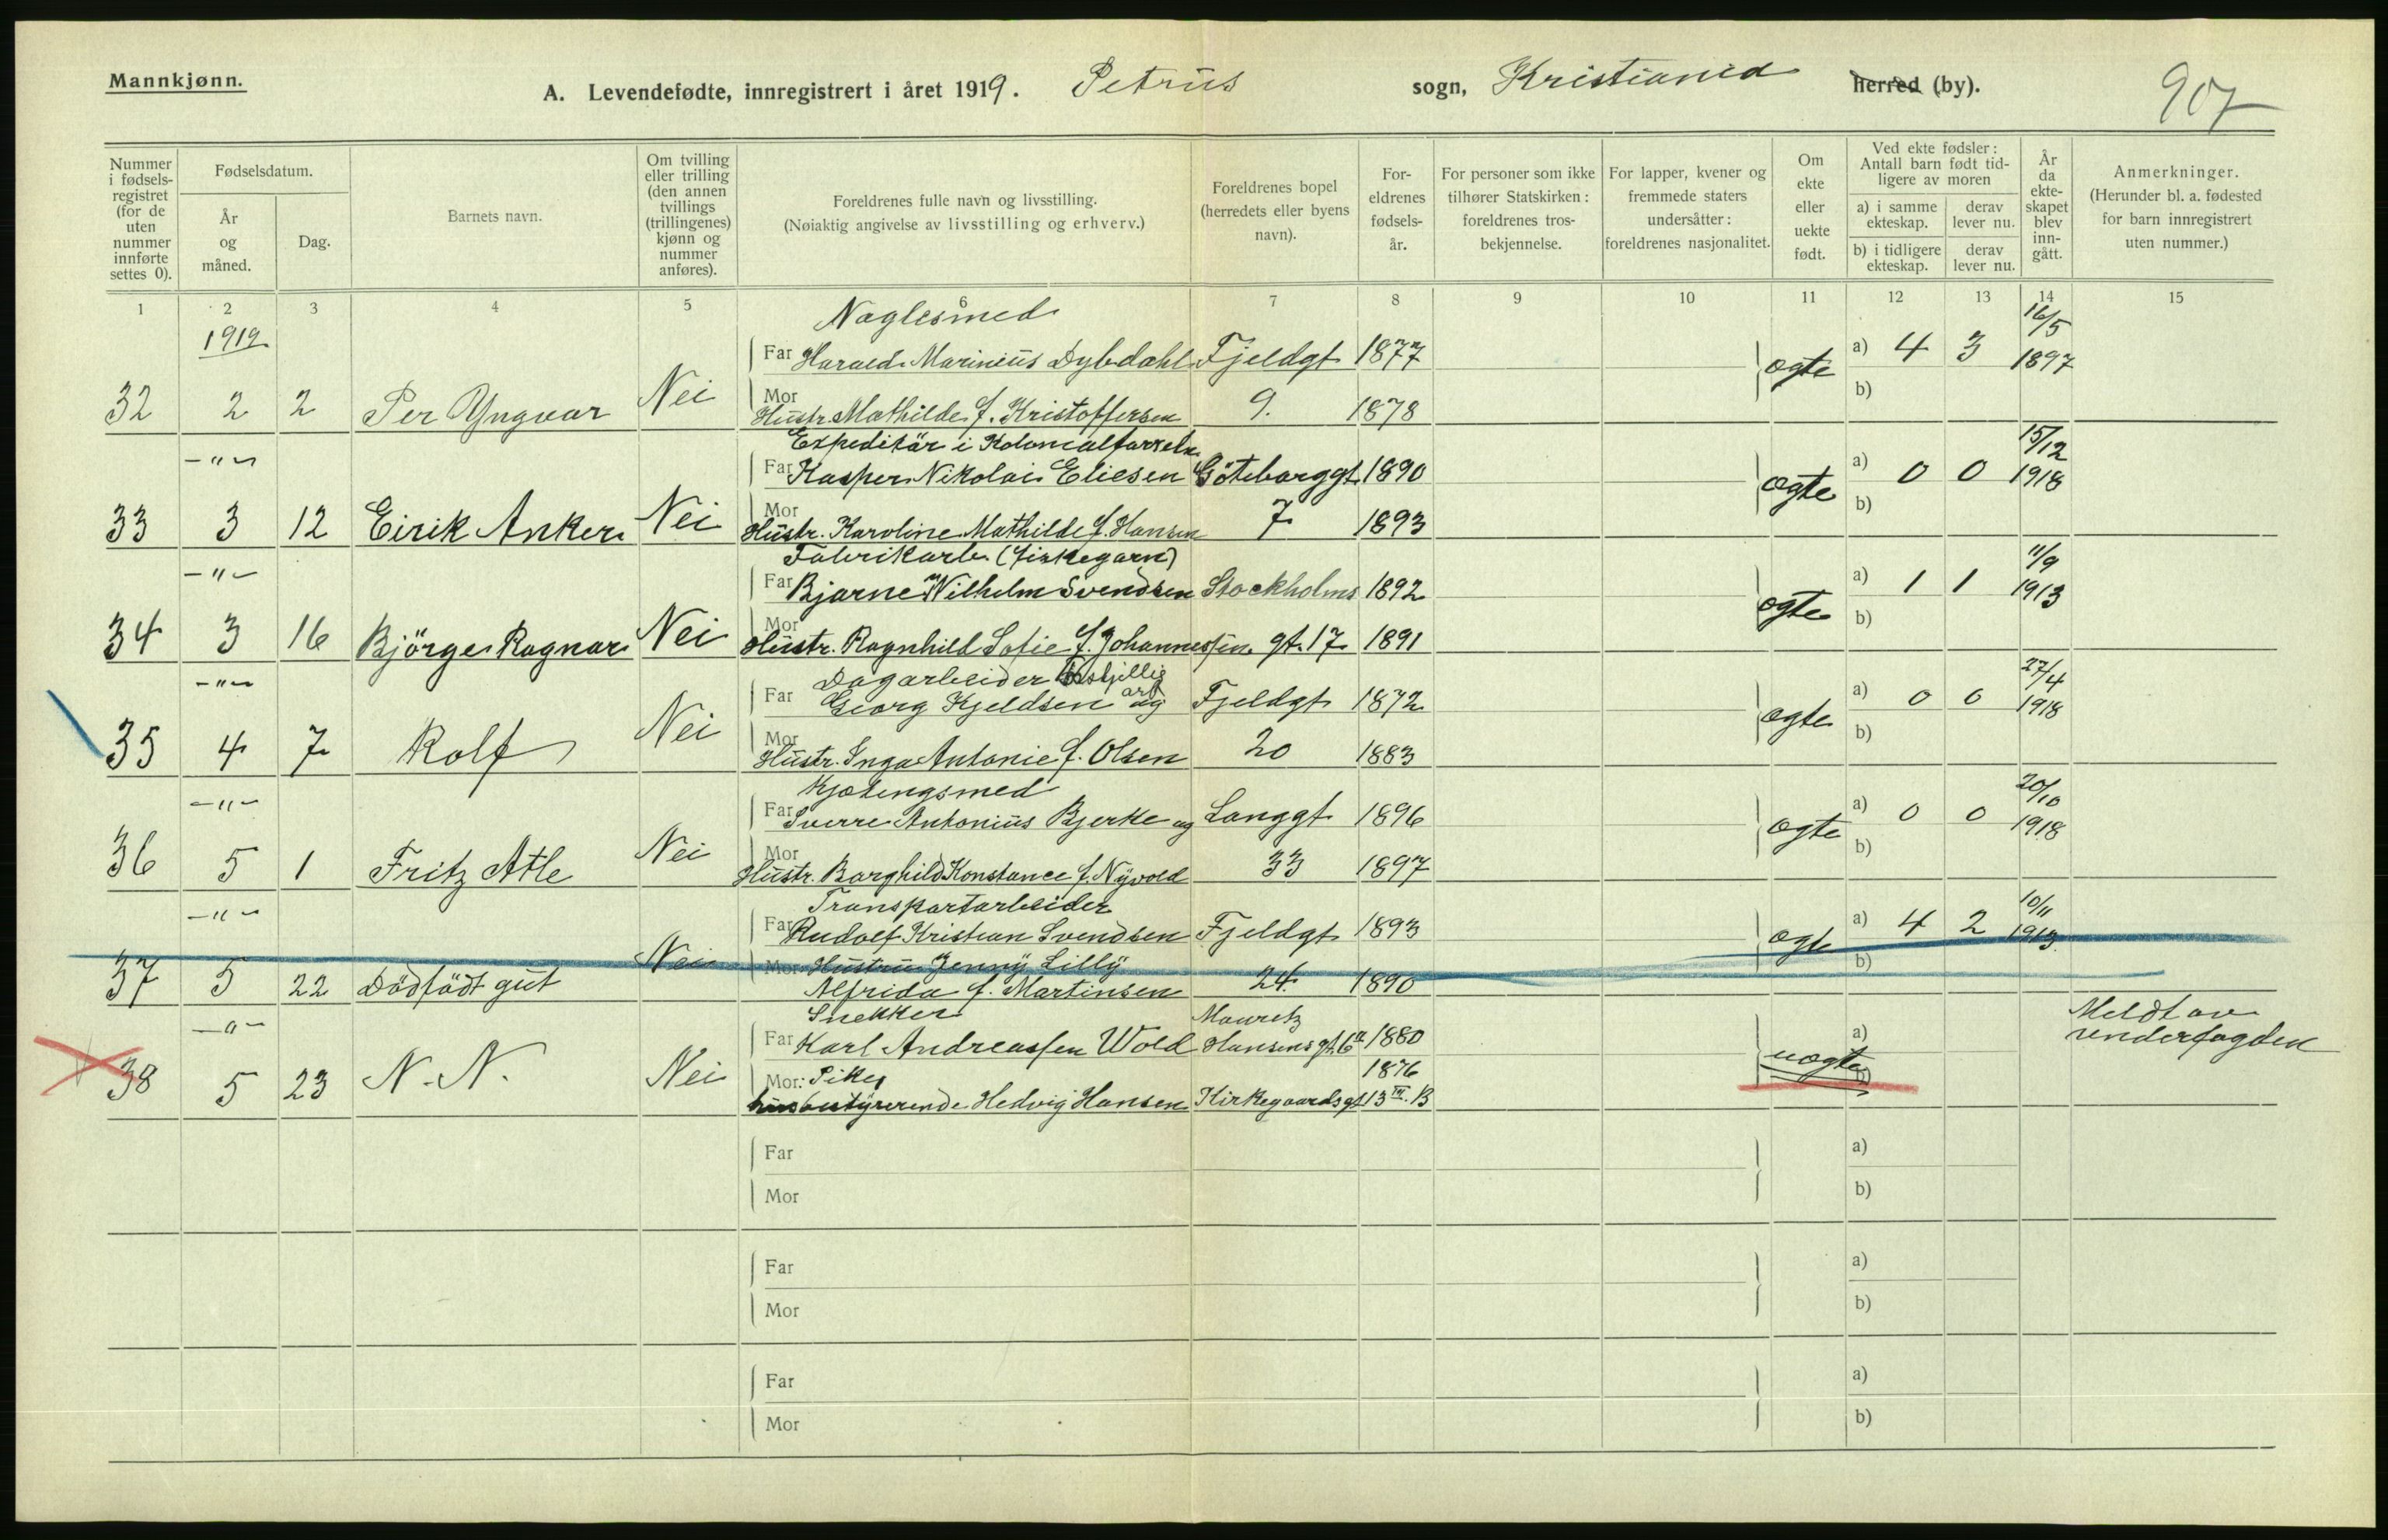 Mannkjønn.
A. Levendefødte, innregistrert i året 1919. Petrus sogn, Kristiania herred (by).
907
Nummer i fødselsregistret (for de uten nummer innførte settes 0).
Fødselsdatum.
År og måned.
Dag.
Barnets navn.
Om tvilling eller trilling (den annen tvillings (trillingenes) kjønn og nummer anføres).
Foreldrenes fulle navn og livsstilling.
(Nøiaktig angivelse av livsstilling og erhverv.)
Foreldrenes bopel (herredets eller byens navn).
Foreldrenes fødselsår.
For personer som ikke tilhører Statskirken: foreldrenes trosbekjennelse.
For lapper, kvener og fremmede staters undersåtter: foreldrenes nasjonalitet.
Om ekte eller uekte født.
Ved ekte fødsler: Antall barn født tidligere av moren
a) i samme ekteskap.
derav lever nu.
b) i tidligere ekteskap.
derav lever nu.
År da ekteskapet blev inngått.
Anmerkninger.
(Herunder bl. a. fødested for barn innregistrert uten nummer.)
1 2 3 4 5 6 7 8 9 10 11 12 13 14 15
1919
Naglesmed 16/5
Far Harald Marinius Dybdahl Fjeldgt 1877 ægte a) 4 3 1897
32 2 2 Per Yngvar Nei Mor Hustr. Mathilde f. Kristoffersen 9. 1878 b)
Expeditør i Kolonialforretn. 15/12
-"- Far Kasper Nikolai Eliesen Göteborggt. 1890 ægte a) 0 0 1918
33 3 12 Eirik Anker Nei Mor Hustr. Karoline Mathilde f. Hansen 7 1893 b)
Fabrikarb. (fiskegarn) 11/9
-"- Far Bjarne Wilhelm Svendsen Stockholms 1892 ægte a) 1 1 1913
34 3 16 Björge Ragnar Nei Mor Hustr. Ragnhild Sofie f. Johannessen gt. 17 1891 b)
Dagarbeider forskjellig arb 27/4
-"- Far Georg Kjeldsen og Fjeldgt 1872 ægte a) 0 0 1918
35 4 7 Rolf Nei Mor Hustr. Inga Antonie f. Olsen 20 1883 b)
Kjætingsmed 20/10
-"- Far Sverre Antonius Bjerke og Langgt 1896 ægte a) 0 0 1918
36 5 1 Fritz Atle Nei Mor Hustr. Borghild Konstance f. Nyvold 33 1897 b)
Transportarbeider 10/11
-"- Far Rudolf Kristian Svendsen Fjeldgt 1893 ægte a) 4 2 1913.
37 5 22 Dödfödt gut Nei Mor Hustru Jenny Lilly Alfrida f. Martinsen 24. 1890 b)
Snekker Mauretz Meldt av
-"- Far Karl Andreassen Wold Hansens gt. 6 II 1880 uægte a) underfogden
38 5 23 N. N. Nei Mor: Pike, 1876 b)
husbestyrerende Hedvig Hansen Kirkegaardsgt 13 III. B
Far a)
Mor b)
Far a)
Mor b)
Far a)
Mor b)